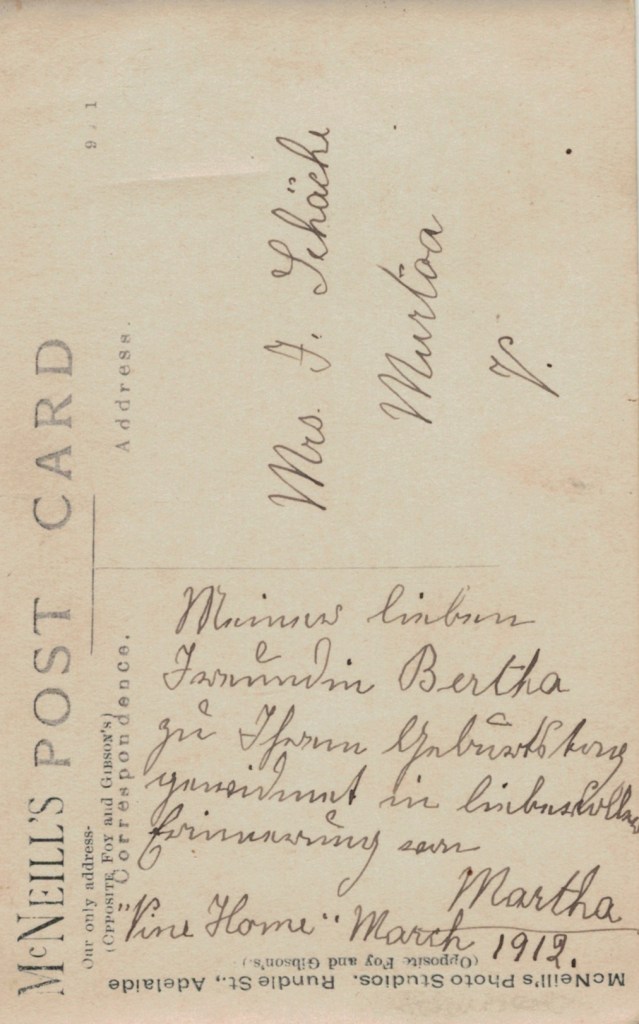 McNEILL'S POST CARD
Our only address-
(OPPOSITE FOY AND GIBSON'S)
Correspondence.
Address.
9 1
Mrs. F. Schäche
Murtoa
V.
Meiner lieben
Freundin Bertha
zu Ihrem Geburtstag
gewidmet in liebevoller
Erinnerung von
Martha
"Vine Home" March 1912.
McNeill's Photo Studios. Rundle St., Adelaide
(Opposite Foy and Gibson's.)